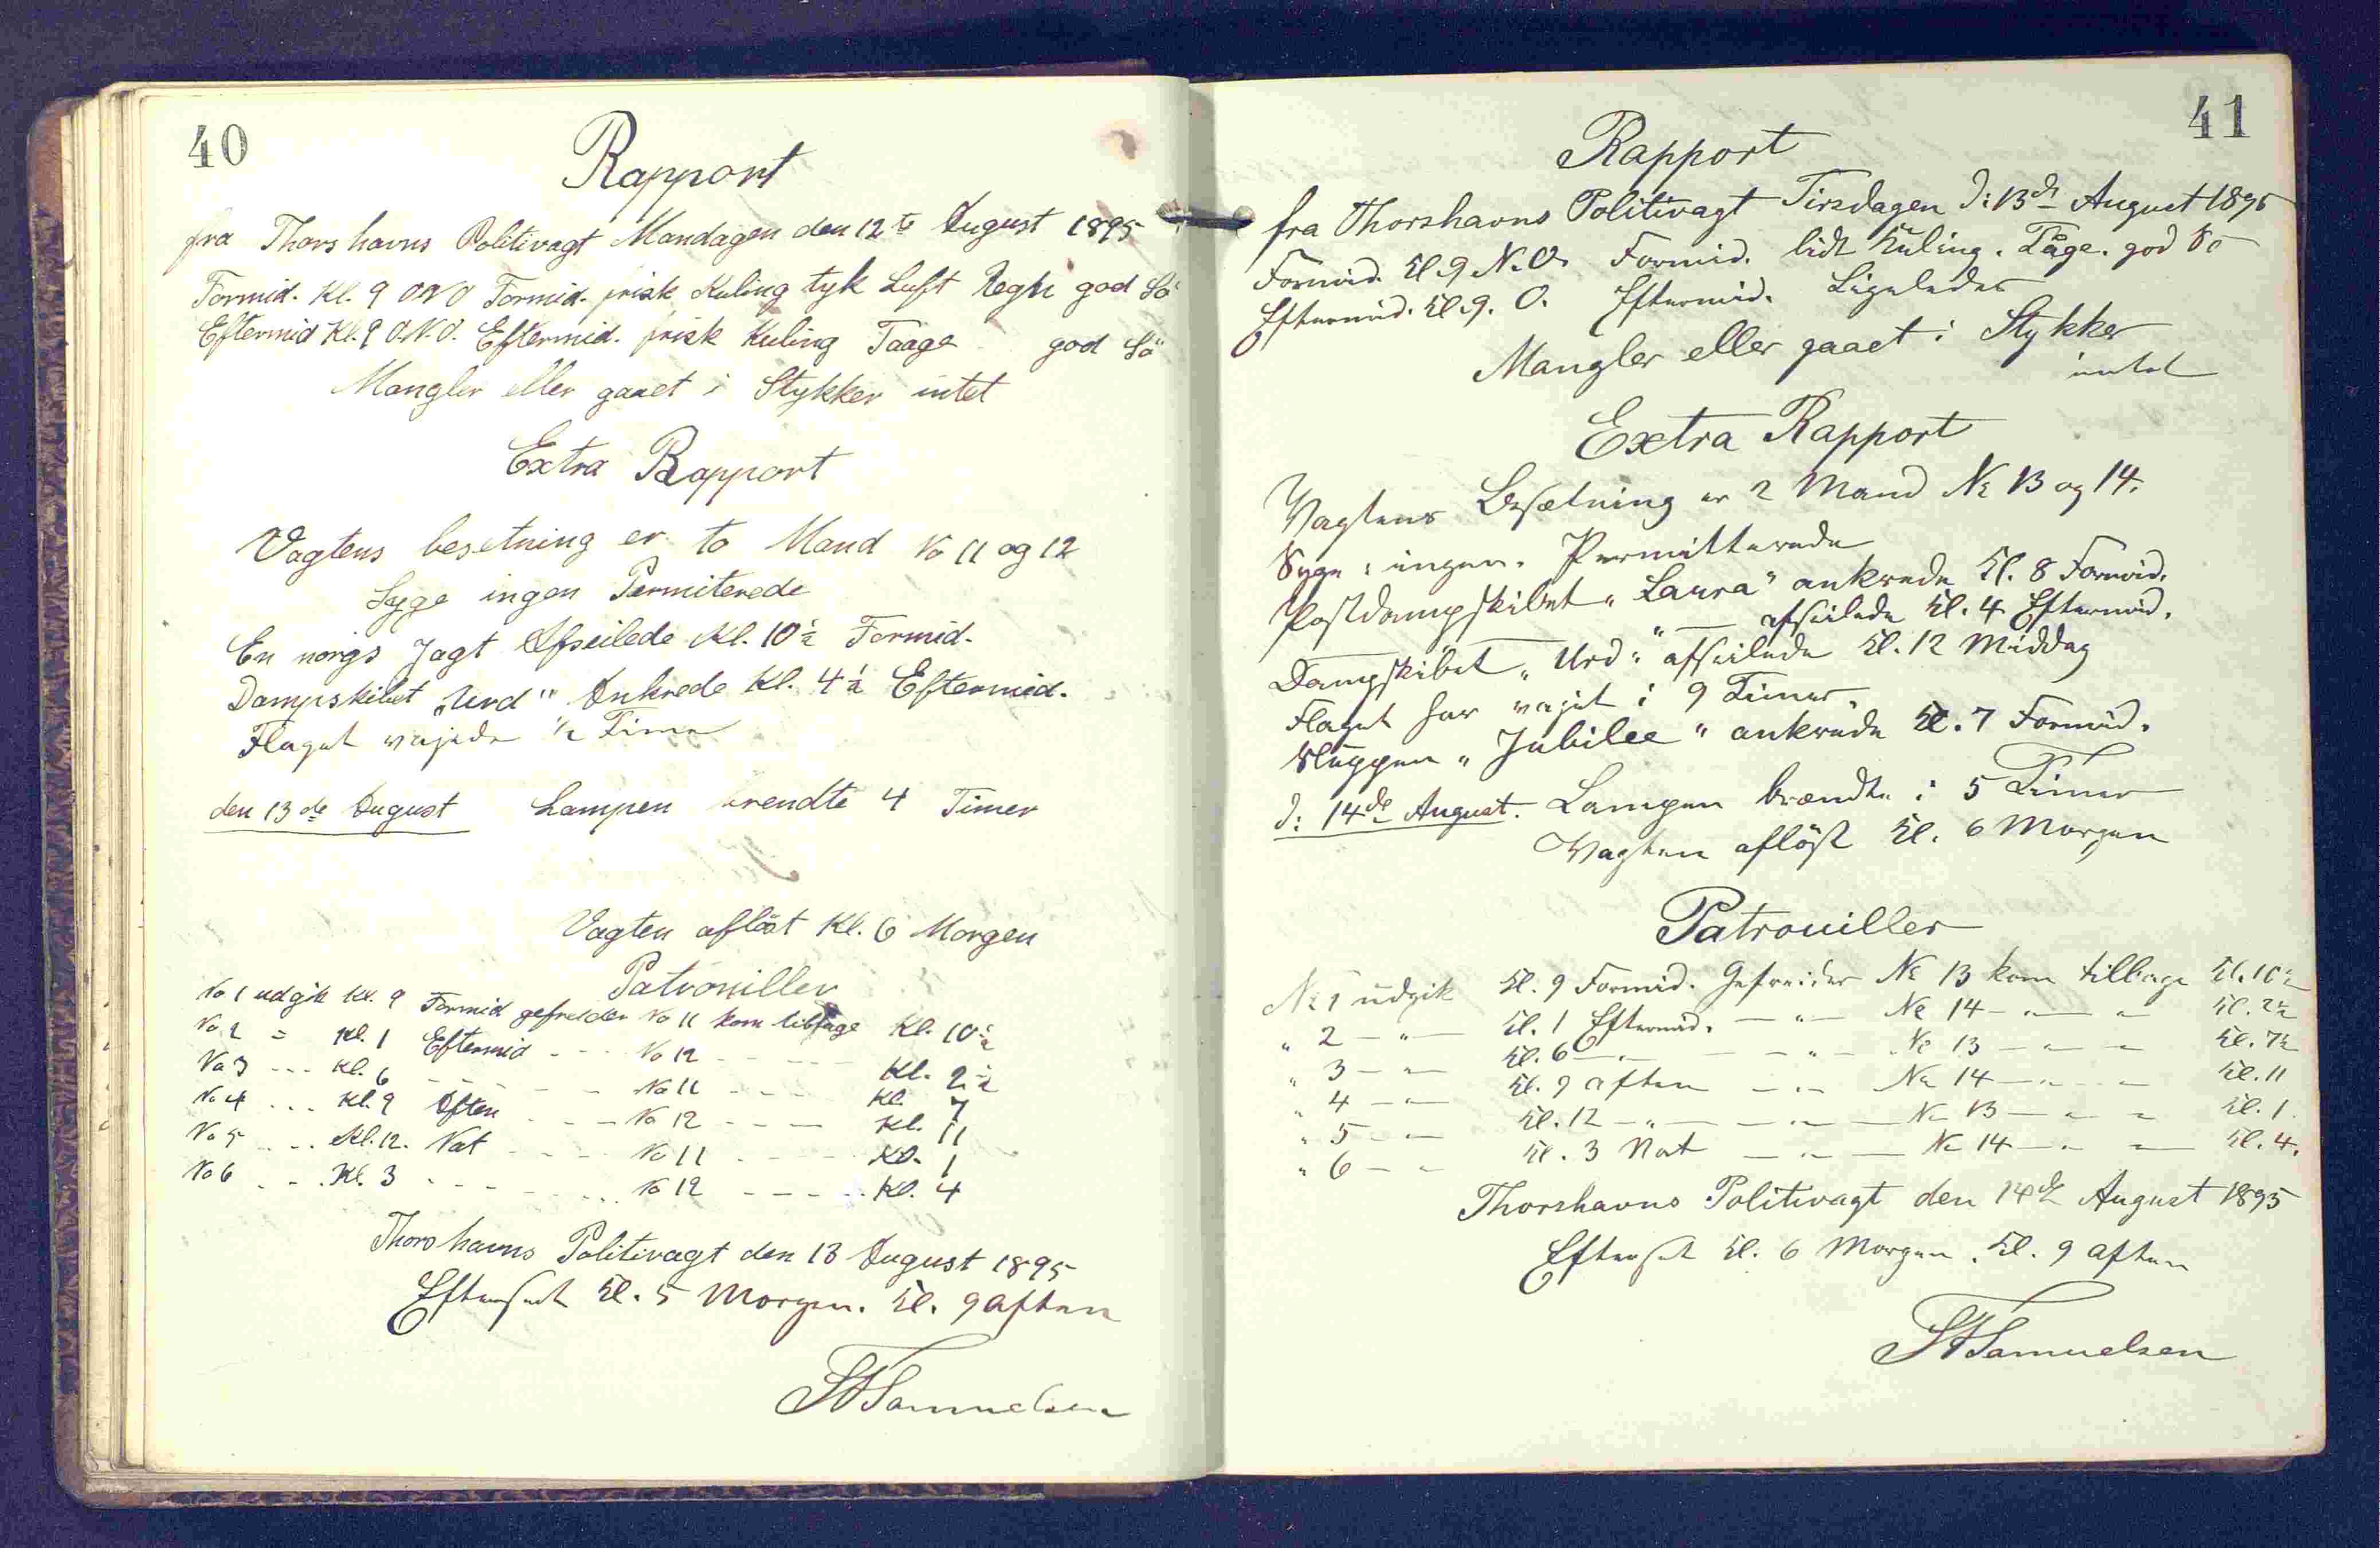 40
Rapport
fra Thorshavns Politivagt Mandagen den 12te August 1895
Formid. Kl. 9 ONO Formid. frisk Kuling tyk Luft Regn god Sö
Eftermid Kl. 9 O.N.O. Eftermid. frisk Kuling Taage god Sö
Mangler eller gaaet i Stykker intet
Extra Rapport
Vagtens besetning er to Mand No 11 og 12
Syge ingen Permiterede
En norgs Jagt Afseilede Kl. 10½ Formid.
Dampskibet „Urd" Ankrede Kl. 4½ Eftermid.
Flaget vajede ½ Time
den 13de August Lampen brendte 4 Timer
Vagten aflöst Kl. 6 Morgen
Patrouiller
No 1 udgik Kl. 9 Formid gefreider No 11 kom tilbage Kl. 10½
No 2 = Kl. 1 Eftermid - - - No 12 - - - - Kl. 2½
No 3 - - - Kl. 6 - - - - No 11 - - - - Kl. 7
No 4 - - - Kl. 9 Aften - - - No 12 - - - - Kl. 11
No 5 - - - Kl. 12. Nat - - - - No 11 - - - - Kl. 1
No 6 - - - Kl. 3 - - - - - - No 12 - - - - Kl. 4
Thorshavns Politivagt den 13 August 1895
Efterset Kl. 5 Morgen. Kl. 9 Aften
Samuelsen
41
Rapport
fra Thorshavns Politivagt Tirsdagen d: 13de August 1895
Formid. Kl. 9 N.O. Formid. lidt Kuling. Tåge. god Sö
Eftermid. Kl. 9. O. Eftermid. Ligeledes
Mangler eller gaaet i Stykker
intet
Extra Rapport
Vagtens Besætning er 2 Mand No 13 og 14.
Syge: ingen. Permitterede
Postdampskibet „Laura" ankrede Kl. 8 Formid.
— " — afseilede Kl. 4 Eftermid.
Dampskibet „Urd" afseilede Kl. 12 Middag
Flaget har vajet i 9 Timer.
Sluppen „Jubilee" ankrede Kl. 7 Formid.
d: 14de August. Lampen brændte i 5 Timer
Vagten aflöst Kl. 6 Morgen
Patrouiller
No 1 udgik Kl. 9 Formid. Gefreider No 13 kom tilbage Kl. 10½
" 2 — " — Kl. 1 Eftermid. — " — No 14 — " — " Kl. 2½
" 3 — " — Kl. 6 — " — — " — No 13 — " — " Kl. 7½
" 4 — " — Kl. 9 Aften — " — No 14 — " — " Kl. 11
" 5 — " — Kl. 12 — " — — " — No 13 — " — " Kl. 1
" 6 — " — Kl. 3 Nat — " — No 14 — " — " Kl. 4.
Thorshavns Politivagt den 14de August 1895
Efterset Kl. 6 Morgen. Kl. 9 Aften
Samuelsen